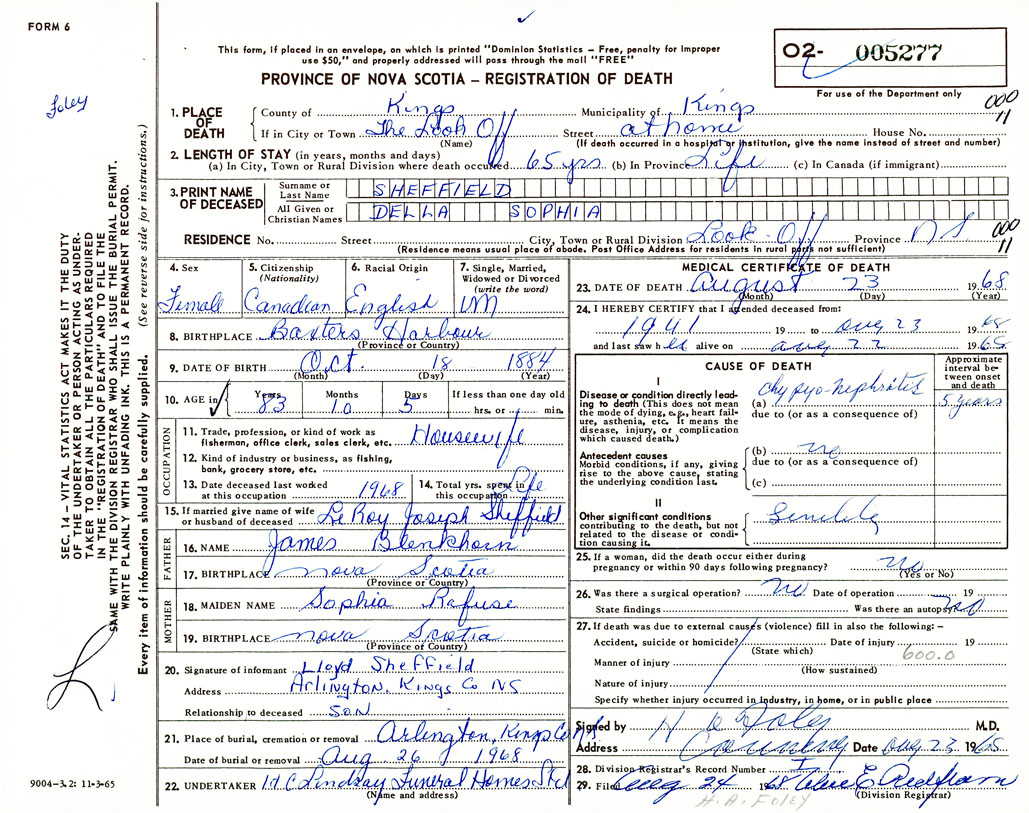 FORM 6
Foley
This form, if placed in an envelope, on which is printed "Dominion Statistics – Free, penalty for improper
use $50," and properly addressed will pass through the mail "FREE"
PROVINCE OF NOVA SCOTIA – REGISTRATION OF DEATH
O2- 005277
For use of the Department only
000
11
1. PLACE OF DEATH County of Kings Municipality of Kings
If in City or Town The Look Off Street at home House No.
(Name) (If death occurred in a hospital or institution, give the name instead of street and number)
2. LENGTH OF STAY (in years, months and days)
(a) In City, Town or Rural Division where death occurred 65 yrs (b) In Province Life (c) In Canada (if immigrant)
3. PRINT NAME OF DECEASED Surname or Last Name SHEFFIELD
All Given or Christian Names DELLA SOPHIA
RESIDENCE No. Street City, Town or Rural Division Look-Off Province NS
(Residence means usual place of abode. Post Office Address for residents in rural parts not sufficient)
000
11
4. Sex Female
5. Citizenship (Nationality) Canadian
6. Racial Origin English
7. Single, Married, Widowed or Divorced (write the word) M
8. BIRTHPLACE Baxters Harbour
(Province or Country)
9. DATE OF BIRTH Oct. 18 1884
(Month) (Day) (Year)
10. AGE in Years 83 Months 10 Days 5 If less than one day old
hrs. or min.
OCCUPATION
11. Trade, profession, or kind of work as
fisherman, office clerk, sales clerk, etc. Housewife
12. Kind of industry or business, as fishing,
bank, grocery store, etc.
13. Date deceased last worked
at this occupation 1968
14. Total yrs. spent in
this occupation Life
15. If married give name of wife
or husband of deceased LeRoy Joseph Sheffield
FATHER
16. NAME James Blenkhorn
17. BIRTHPLACE Nova Scotia
(Province or Country)
MOTHER
18. MAIDEN NAME Sophia Rafuse
19. BIRTHPLACE Nova Scotia
(Province of Country)
20. Signature of informant Lloyd Sheffield
Address Arlington, Kings Co NS
Relationship to deceased SON
21. Place of burial, cremation or removal Arlington, Kings Co NS
Date of burial or removal Aug. 26 1968
22. UNDERTAKER Lindsay Funeral Homes Ltd
(Name and address)
MEDICAL CERTIFICATE OF DEATH
23. DATE OF DEATH August 23 1968
(Month) (Day) (Year)
24. I HEREBY CERTIFY that I attended deceased from:
1941 19 to Aug 23 1968
and last saw her alive on Aug 22 1968
CAUSE OF DEATH
Approximate interval between onset and death
I
Disease or condition directly leading to death (This does not mean
the mode of dying, e.g., heart failure, asthenia, etc. It means the
disease, injury, or complication
which caused death.)
(a) Ch pyo-nephrotis 5 years
due to (or as a consequence of)
Antecedent causes
Morbid conditions, if any, giving
rise to the above cause, stating
the underlying condition last.
(b) no
due to (or as a consequence of)
(c)
II
Other significant conditions
contributing to the death, but not
related to the disease or condition causing it.
Senility
25. If a woman, did the death occur either during
pregnancy or within 90 days following pregnancy? no
(Yes or No)
26. Was there a surgical operation? no Date of operation 19
State findings Was there an autopsy no
27. If death was due to external causes (violence) fill in also the following: –
Accident, suicide or homicide? Date of injury 19
(State which) 600.0
Manner of injury
(How sustained)
Nature of injury
Specify whether injury occurred in industry, in home, or in public place
Signed by H A Foley M.D.
Address Canning Date Aug 23 1968
28. Division Registrar's Record Number
29. Filed Aug 24 1968
(Division Registrar)
H. A. FOLEY
SEC. 14 – VITAL STATISTICS ACT MAKES IT THE DUTY
OF THE UNDERTAKER OR PERSON ACTING AS UNDER-
TAKER TO OBTAIN ALL THE PARTICULARS REQUIRED
IN THE "REGISTRATION OF DEATH" AND TO FILE THE
SAME WITH THE DIVISION REGISTRAR WHO SHALL ISSUE THE BURIAL PERMIT.
WRITE PLAINLY WITH UNFADING INK. THIS IS A PERMANENT RECORD.
Every item of information should be carefully supplied. (See reverse side for instructions.)
9004–3.2: 11-3-65